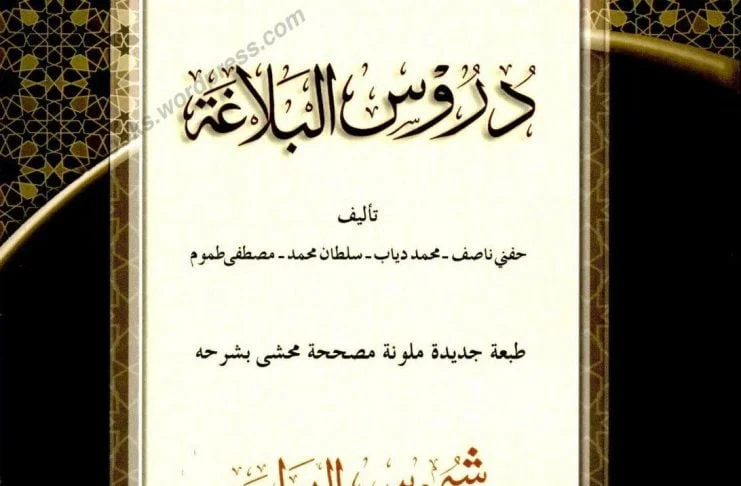 ks.wordpress.com
دُرُوْسُ البَلَاغَة
تأليف
حفني ناصف - محمد دياب - سلطان محمد - مصطفى طموم
طبعة جديدة ملونة مصححة محشى بشرحه